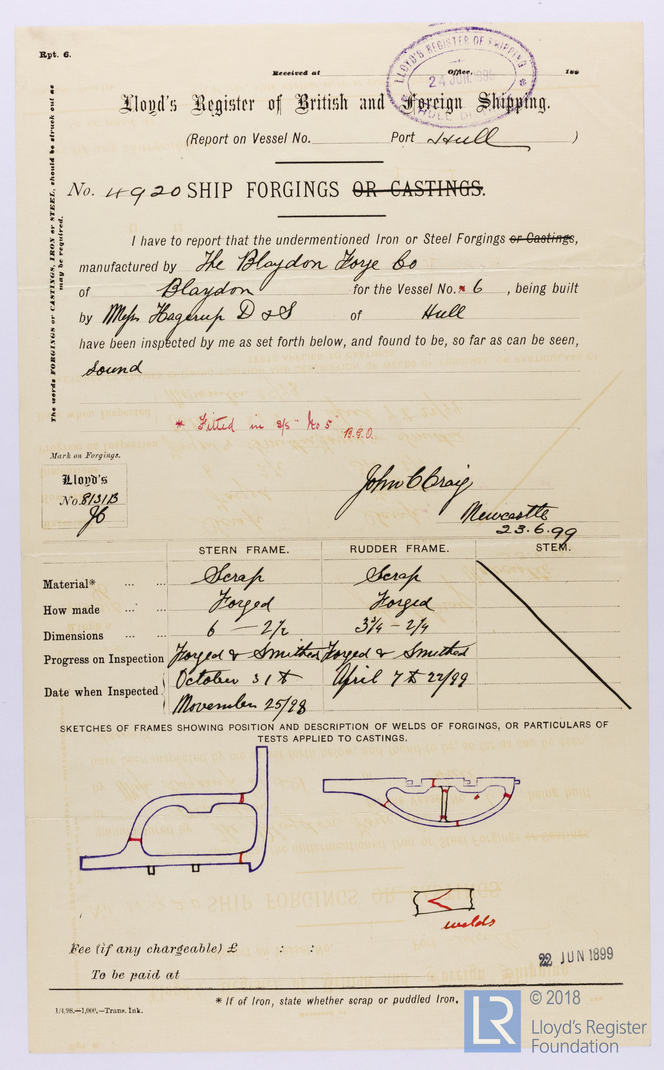 Rpt. 6.
Received at Office, 189
LLOYD'S REGISTER OF SHIPPING
24 JUN 1899
HULL
Lloyd's Register of British and Foreign Shipping.
(Report on Vessel No. Port Hull )
No. 4920 SHIP FORGINGS OR CASTINGS.
The words FORGINGS or CASTINGS, IRON or STEEL, should be struck out as
may be required.
I have to report that the undermentioned Iron or Steel Forgings or Castings,
manufactured by The Blaydon Forge Co
of Blaydon for the Vessel No. * 6 , being built
by Messrs Hagerup D & S of Hull
have been inspected by me as set forth below, and found to be, so far as can be seen,
sound
* Fitted in S/S No 5
Mark on Forgings.
Lloyd's
No. 8131B
JC
John C Craig
Newcastle
23.6.99
STERN FRAME. RUDDER FRAME. STEM.
Material* ... ... Scrap Scrap
How made ... ... Forged Forged
Dimensions ... ... 6 — 2½ 3¾ — 2¼
Progress on Inspection Forged & Smithed Forged & Smithed
Date when Inspected October 31st April 7th 22/99
November 25/98
SKETCHES OF FRAMES SHOWING POSITION AND DESCRIPTION OF WELDS OF FORGINGS, OR PARTICULARS OF
TESTS APPLIED TO CASTINGS.
welds
Fee (if any chargeable) £ : :
22 JUN 1899
To be paid at
* If of Iron, state whether scrap or puddled Iron,
1/4,98.—1,000.—Trans. Ink.
LR
© 2018
Lloyd's Register
Foundation